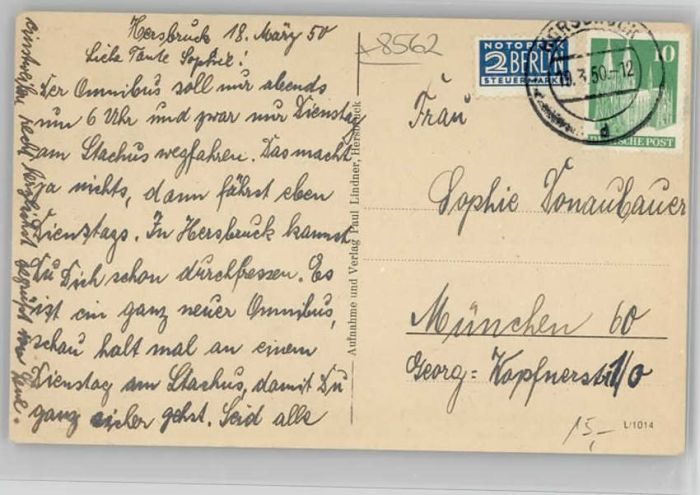 Hersbruck 18. März 50
Liebe Tante Sophie!
Der Omnibus soll nur abends
um 6 Uhr und zwar nur Dienstag
am Stachus wegfahren. Das macht
ja nichts, dann fährst eben
Dienstags. In Hersbruck kannst
Du Dich schon durchfressen. Es
ist ein ganz neuer Omnibus,
schau halt mal an einem
Dienstag am Stachus, damit Du
ganz sicher gehst. Seid alle
recht herzlichst gegrüßt von
Aufnahme und Verlag Paul Lindner, Hersbruck
A8562
NOTOPFER
2 BERLIN
STEUERMARKE
HERSBRUCK
19.3.50.-12
d
10
DEUTSCHE POST
Frau
Sophie Donaubauer
München 60
Georg-Kopfnerstr.
15,-
L/1014